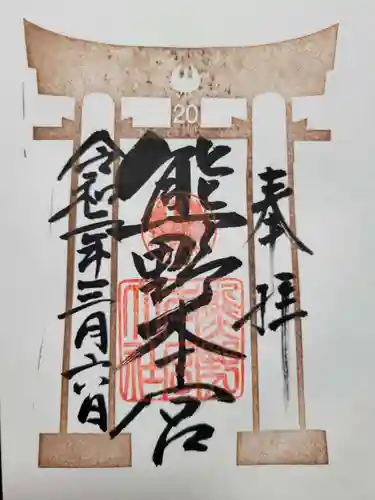 20
奉拝
熊野本宮
令和二年三月六日